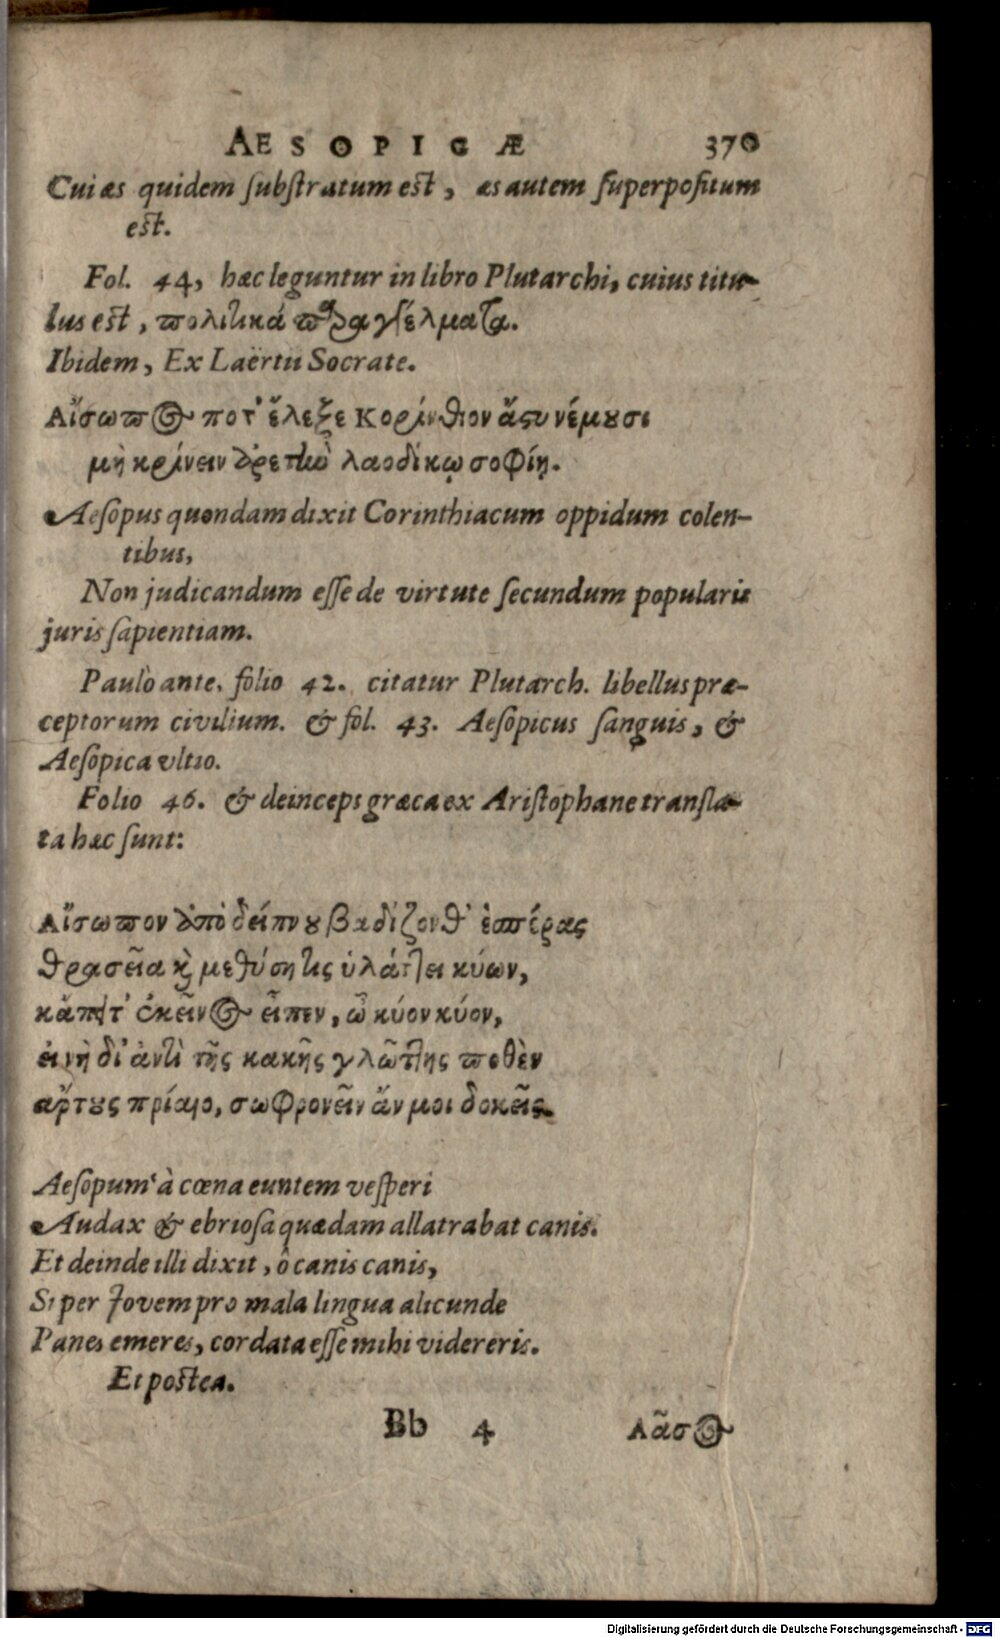 AESOPICÆ 370
Cui æs quidem ſubſtratum eſt, æs autem ſuperpoſitum
eſt.
Fol. 44, hæc leguntur in libro Plutarchi, cuius titu-
lus eſt, πολιτικά παραγγέλματα.
Ibidem, Ex Laërtii Socrate.
Αἴσωπος ποτ' ἔλεξε Κορίνθιον ἄςυ νέμουσι
μὴ κρίνειν ἀρετὴν λαοδίκῳ σοφίῃ.
Aeſopus quondam dixit Corinthiacum oppidum colen-
tibus,
Non judicandum eſſe de virtute ſecundum popularis
juris ſapientiam.
Paulò ante, folio 42. citatur Plutarch. libellus præ-
ceptorum civilium. & fol. 43. Aeſopicus ſanguis, &
Aeſopica vltio.
Folio 46. & deinceps græca ex Ariſtophane transla-
ta hæc ſunt:
Αἴσωπον ἀπὸ δείπνου βαδίζονθ' ἑσπέρας
θρασεῖα καὶ μεθύση τις ὑλάττει κύων,
κἄπειτ' ἐκεῖνος εἶπεν, ὦ κύον κύον,
εἰ νὴ δί' ἀντὶ τῆς κακῆς γλώττης ποθὲν
ἄρτους πρίαιο, σωφρονεῖν ἄν μοι δοκεῖς.
Aeſopum à cœna euntem veſperi
Audax & ebrioſa quædam allatrabat canis.
Et deinde illi dixit, ô canis canis,
Si per Jovem pro mala lingua alicunde
Panes emeres, cordata eſſe mihi videreris.
Et poſtea.
Bb 4 Αἶσος
Digitalisierung gefördert durch die Deutsche Forschungsgemeinschaft - DFG